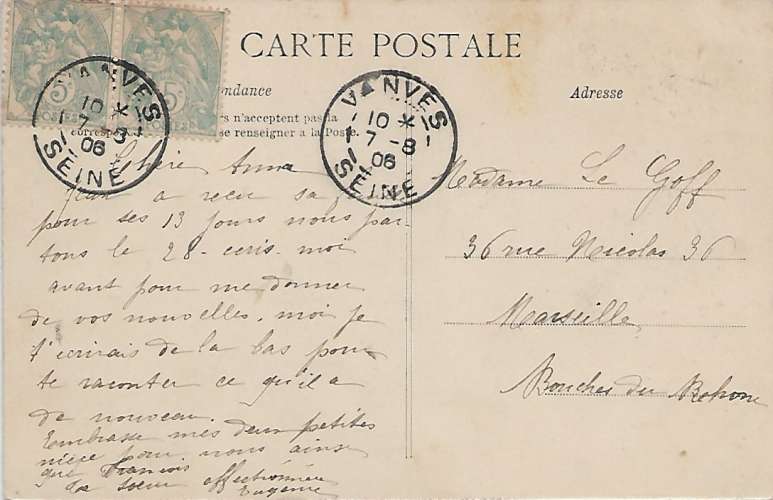 CARTE POSTALE
ndance
Adresse
rs n'acceptent pas la
corresp
se renseigner à la Poste.
5c
5c
POSTES
VANVES
10 *
7 - 8
06
SEINE
VANVES
10 *
7 - 8
06
SEINE
Chère Anna
Jean a recu sa
pour ses 13 jours nous par-
tons le 28 - ecris moi
avant pour me donner
de vos nouvelles. moi je
t'ecrirais de la bas pour
te raconter ce qu'il a
de nouveau.
Embrasse mes deux petites
nièce pour nous ainsi
que Francois
ta soeur affectionnée
Eugenie
Madame Le Goff
36 rue Nicolas 36
Marseille
Bouches du Rohone